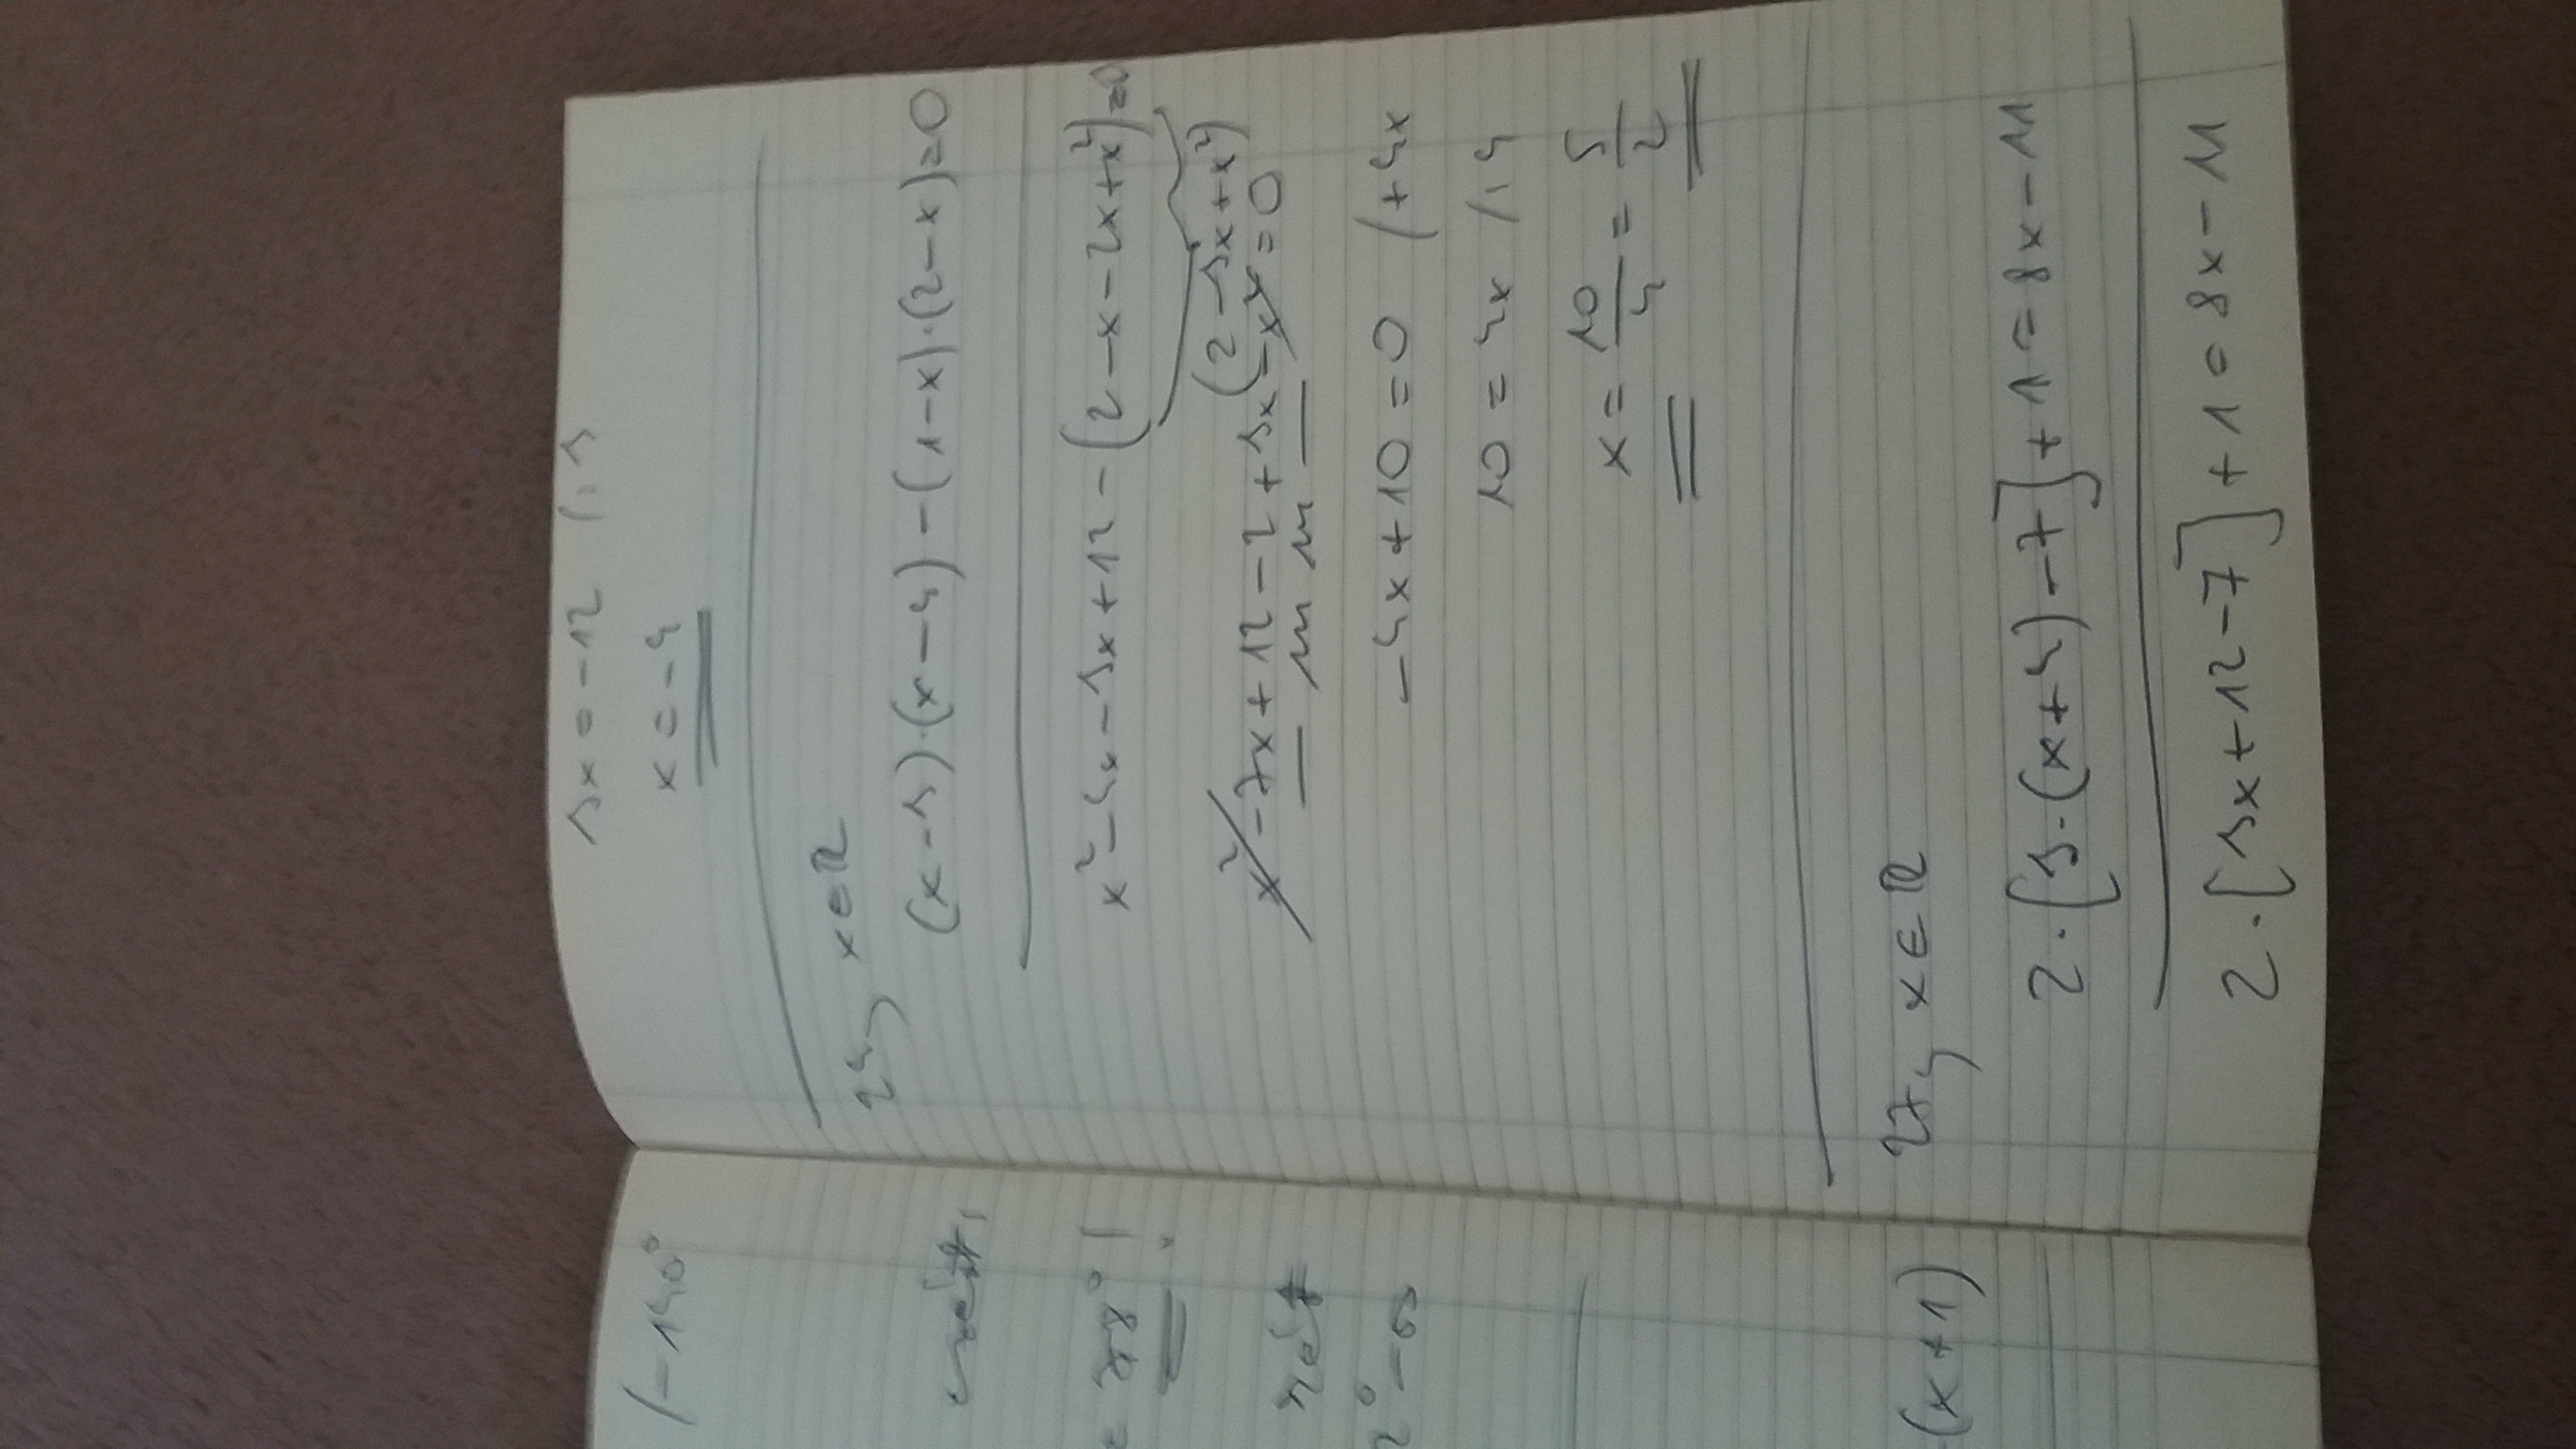 3x = -12 /:3
x = -4
24, x∈ℝ
(x-3)·(x-4)-(1-x)·(2-x)=0
x²-4x-3x+12-(2-x-2x+x²)=0
(2-3x+x²)
x²-7x+12-2+3x-x²=0
-4x+10=0 /+4x
10=4x /:4
x=10/4=5/2
27, x∈ℝ
2·[3·(x+4)-7]+1=8x-11
2·[3x+12-7]+1=8x-11
/-140°
(x+1)